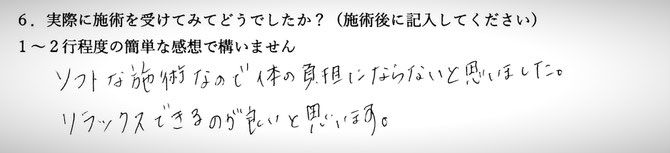 ６．実際に施術を受けてみてどうでしたか？（施術後に記入してください）
１～２行程度の簡単な感想で構いません
ソフトな施術なので体の負担にならないと思いました。
リラックスできるのが良いと思います。